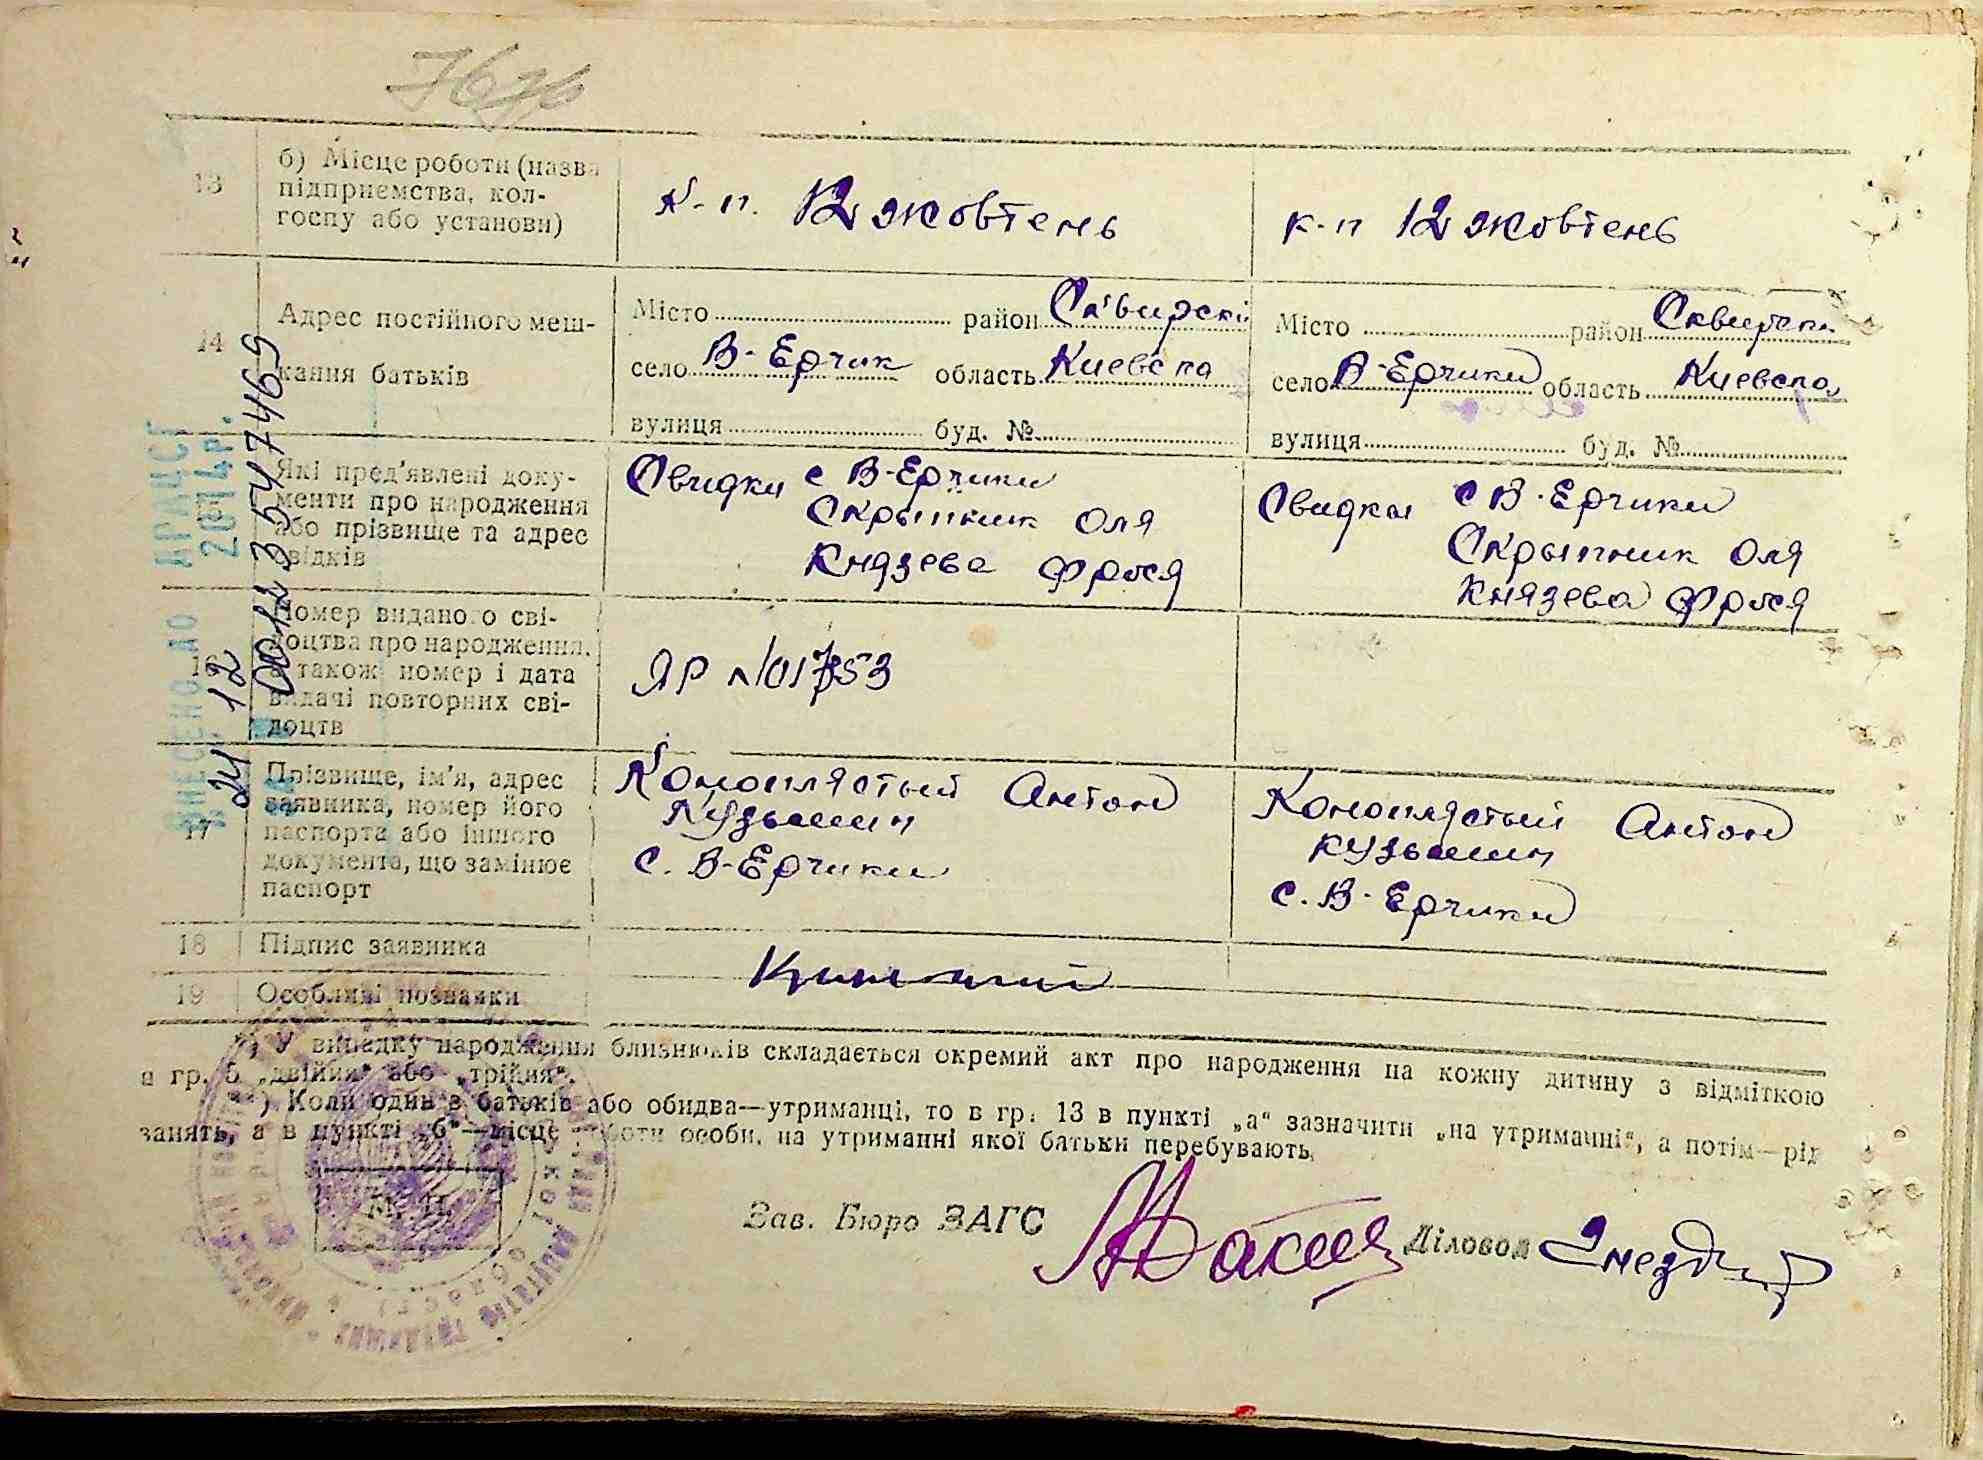 13
б) Місце роботи (назва
підприємства, кол-
госпу або установи)
к-п. 12 жовтень
к-п 12 жовтень
14
Адрес постійного меш-
кання батьків
Місто район Сквирскі
село В-Ерчик область Киевска
вулиця буд. №
Місто район Сквирски
село В-Ерчики область Киевска
вулиця буд. №
Які пред'явлені доку-
менти про народження
або прізвище та адрес
свідків
Свидки с В-Ерчики
Скрыпник Оля
Князева Фрося
Свидки с В-Ерчики
Скрыпник Оля
Князева Фрося
16
Номер виданого сві-
доцтва про народження,
а також номер і дата
видачі повторних сві-
доцтв
ЯР №017353
17
Прізвище, ім'я, адрес
заявника, номер його
паспорта або іншого
документа, що замінює
паспорт
Коноплястый Антон
Кузьмин
с. В-Ерчики
Коноплястый Антон
Кузьмин
с. В-Ерчики
18
Підпис заявника
19
Особливі познаяки
*) У випадку народження близнюків складається окремий акт про народження на кожну дитину з відміткою
в гр. 5 „двійня" або „трійня".
**) Коли один з батьків або обидва—утриманці, то в гр. 13 в пункті „а" зазначити „на утриманні", а потім—рід
занять, а в пункті „б"—місце роботи особи, на утриманні якої батьки перебувають.
М. П.
Зав. Бюро ЗАГС
Діловод
ВНЕСЕНО ДО ДРАЦСГ
24 12 2014р.
00123547469